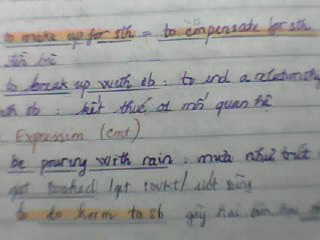 to make up for sth = to compensate for sth
đền bù
to break up with sb : to end a relationship
with sb : kết thúc 01 mối quan hệ
Expression (cont)
be pouring with rain : mưa như trút
get soaked /get
to do harm to sb gây hại